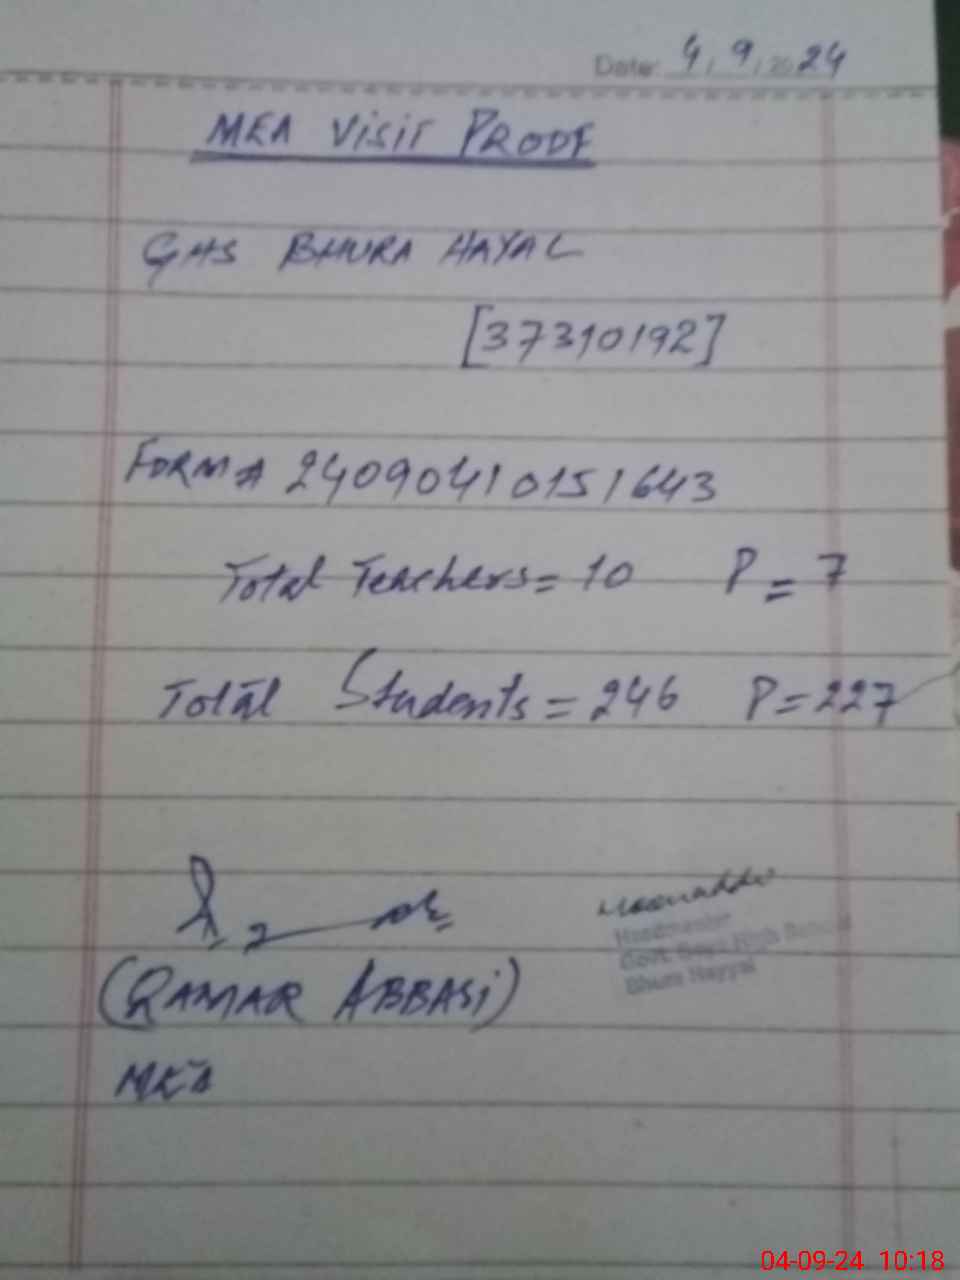 Date: 4, 9, 2024
MEA Visit PROOF
GHS BHURA HAYAL
[37310192]
FORM A 24090410151643
Total Teachers = 10 P = 7
Total Students = 246 P = 227
Headmaster
Govt. Boys High School
(QAMAR ABBASi)
MEA
04-09-24 10:18